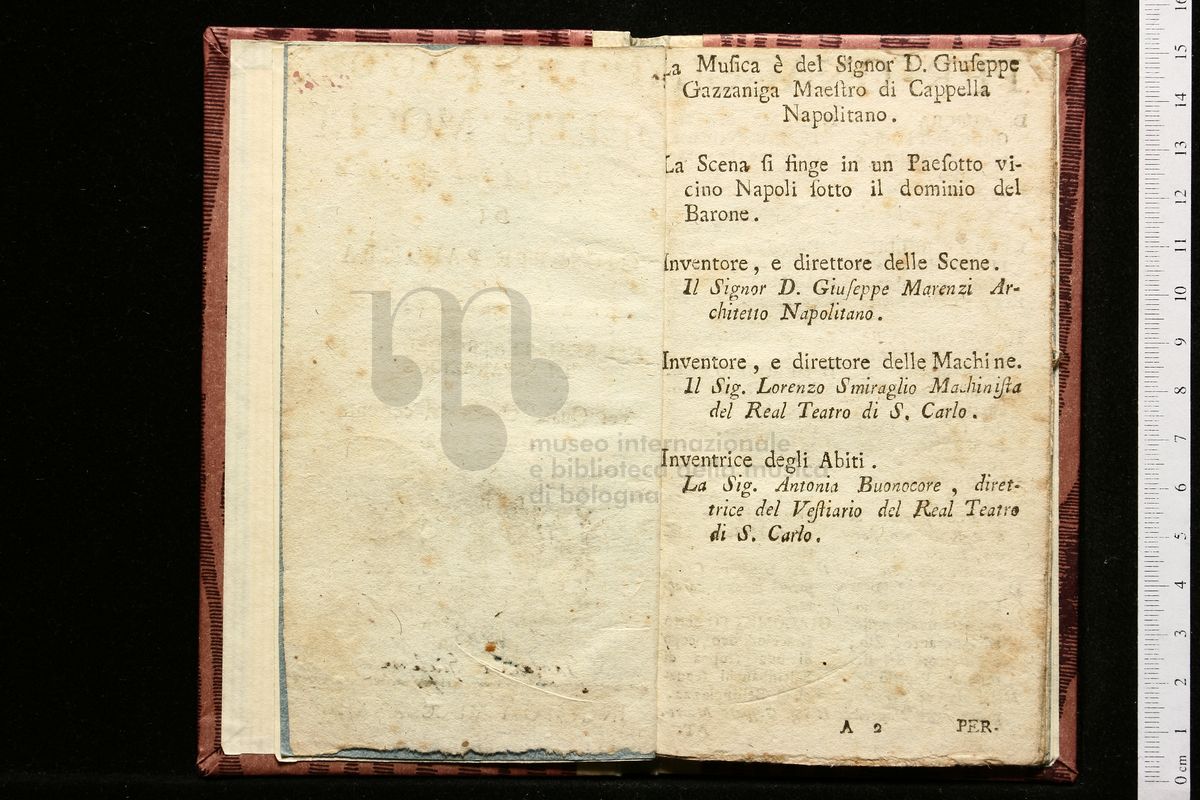 La Muſica è del Signor D. Giuſeppe
Gazzaniga Maeſtro di Cappella
Napolitano.
La Scena ſi finge in un Paeſotto vi-
cino Napoli ſotto il dominio del
Barone.
Inventore, e direttore delle Scene.
Il Signor D. Giuſeppe Marenzi Ar-
chitetto Napolitano.
Inventore, e direttore delle Machine.
Il Sig. Lorenzo Smiraglio Machiniſta
del Real Teatro di S. Carlo.
Inventrice degli Abiti.
La Sig. Antonia Buonocore, diret-
trice del Veſtiario del Real Teatro
di S. Carlo.
A 2 PER-
museo internazionale
e biblioteca della musica
di bologna
0 cm 1 2 3 4 5 6 7 8 9 10 11 12 13 14 15 16